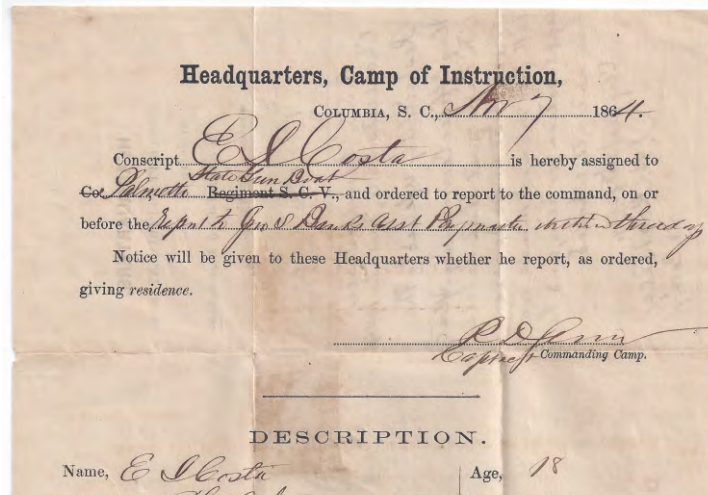 Headquarters, Camp of Instruction,
COLUMBIA, S. C., Nov 7 1864.
Conscript E I Costa is hereby assigned to
State Gun Boat
Co. Palmetto Regiment S. C. V., and ordered to report to the command, on or
before the Report to Geo S Banks Asst Paymaster within three
Notice will be given to these Headquarters whether he report, as ordered,
giving residence.
R D
Capt Commanding Camp.
DESCRIPTION.
Name, E I Costa Age, 18